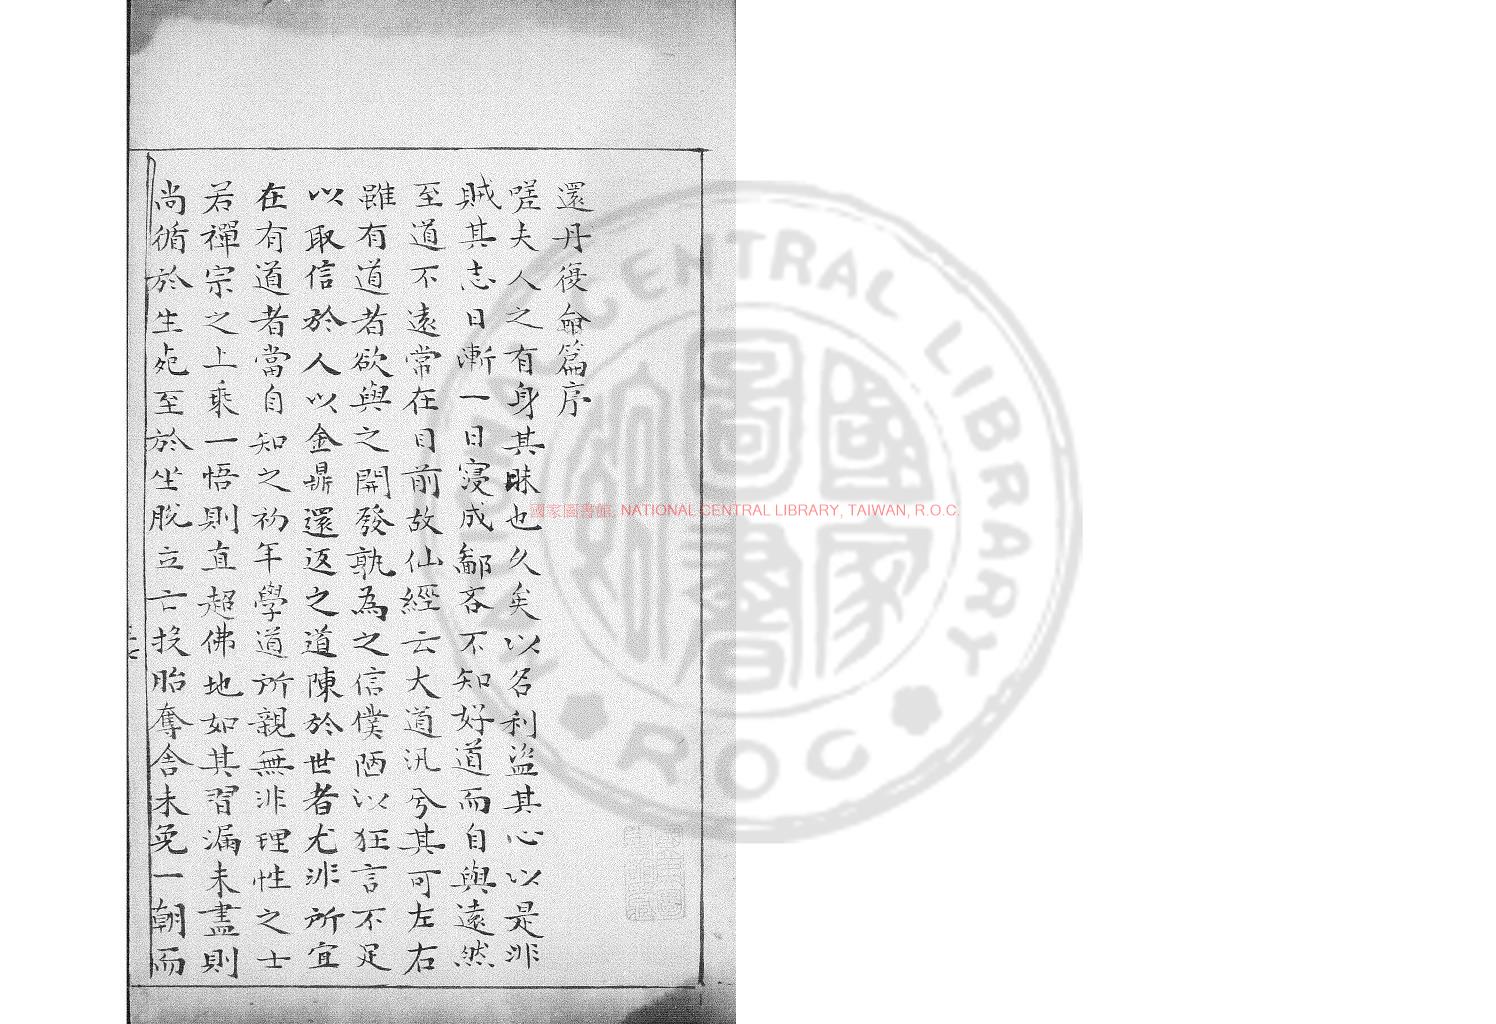 還丹復命篇序
嗟夫人之有身其昧也久矣以名利盜其心以是非
賊其志日漸一日寖成鄙吝不知好道而自與遠然
至道不遠常在目前故仙經云大道汎兮其可左右
雖有道者欲與之開發孰為之信僕陋以狂言不足
以取信於人以金鼎還返之道陳於世者尤非所宜
在有道者當自知之初年學道所親無非理性之士
若禪宗之上乘一悟則直超佛地如其習漏未盡則
尚循於生死至於坐脫立亡投胎奪舍未免一朝而
國家圖書館, NATIONAL CENTRAL LIBRARY, TAIWAN, R.O.C.
NATIONAL CENTRAL LIBRARY
ROC
國家圖書